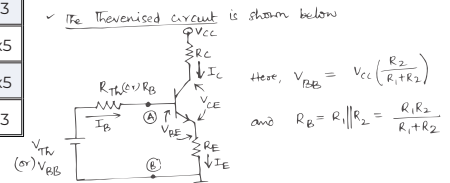 3
x5
x5
3
✓ The Thevenised circuit is shown below
VCC
RC
IC
RTh(or) RB
IB
A
VCE
VBE
VTh
(or) VBB
B
RE
IE
Here, VBB = VCC (R2 / R1+R2)
and RB = R1||R2 = R1R2 / R1+R2